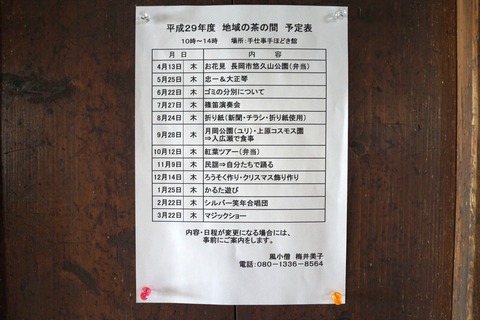 平成29年度 地域の茶の間 予定表
10時～14時 場所:手仕事手ほどき館
月 日 内 容
4月13日 木 お花見 長岡市悠久山公園(弁当)
5月25日 木 忠一&大正琴
6月22日 木 ゴミの分別について
7月27日 木 篠笛演奏会
8月24日 木 折り紙(新聞・チラシ・折り紙使用)
9月28日 木 月岡公園(ユリ)・上原コスモス園
⇒入広瀬で食事
10月12日 木 紅葉ツアー(弁当)
11月9日 木 民謡⇒自分たちで踊る
12月14日 木 ろうそく作り・クリスマス飾り作り
1月25日 木 かるた遊び
2月22日 木 シルバー笑年合唱団
3月22日 木 マジックショー
内容・日程が変更になる場合には、
事前にご案内をします。
風小僧 梅井美子
電話:080-1336-8564